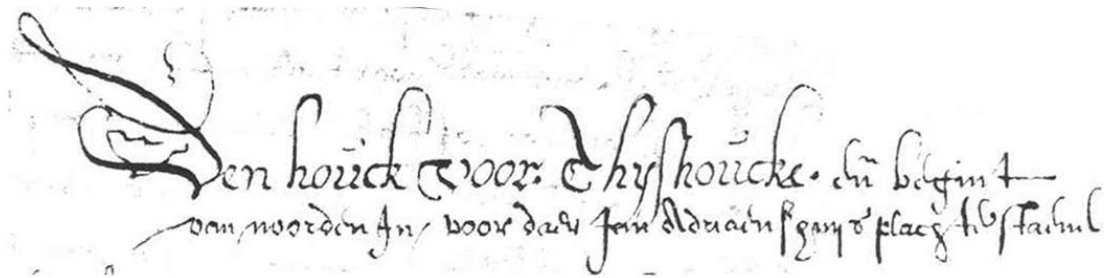 Den houck voor Thyshoucke. en begint
van noorden In voor daer Jan Adriaensz huys plach te staene